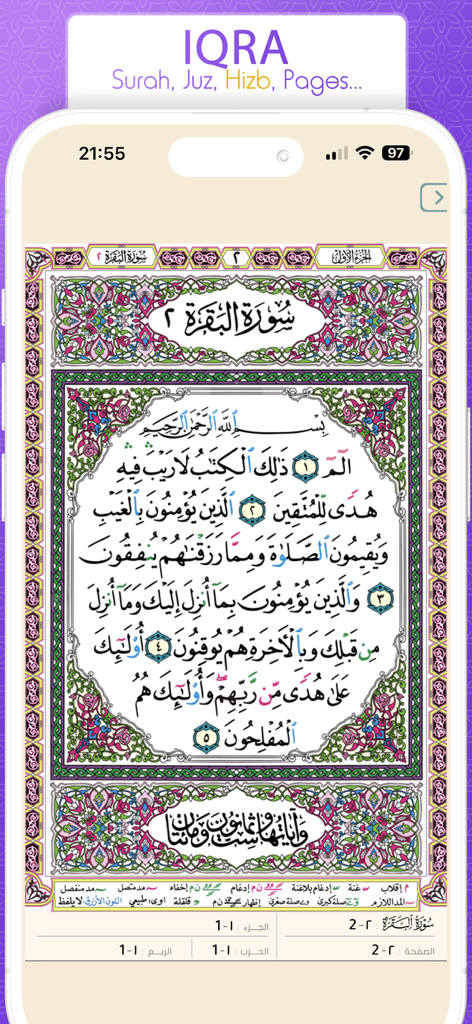 IQRA
Surah, Juz, Hizb, Pages...
21:55
97
الجزء الأول ٢ سُورَةُ البَقَرَةِ ٢
سُورَةُ البَقَرَةِ ٢
بِسْمِ اللَّهِ الرَّحْمَٰنِ الرَّحِيمِ
الٓمٓ ١ ذَٰلِكَ الْكِتَٰبُ لَا رَيْبَ فِيهِ
هُدًى لِّلْمُتَّقِينَ ٢ الَّذِينَ يُؤْمِنُونَ بِالْغَيْبِ
وَيُقِيمُونَ الصَّلَوٰةَ وَمِمَّا رَزَقْنَٰهُمْ يُنفِقُونَ
٣ وَالَّذِينَ يُؤْمِنُونَ بِمَآ أُنزِلَ إِلَيْكَ وَمَآ أُنزِلَ
مِن قَبْلِكَ وَبِالْآخِرَةِ هُمْ يُوقِنُونَ ٤ أُوْلَٰٓئِكَ
عَلَىٰ هُدًى مِّن رَّبِّهِمْ وَأُوْلَٰٓئِكَ هُمُ
الْمُفْلِحُونَ ٥
وَآيَاتُهَا سِتٌّ وَثَمَانُونَ وَمِائَتَانِ
م إقلاب غنة إدغام بلاغنة ن م إدغام ن م إخفاء مد متصل مد منفصل
المد اللازم صلة كبرى صلة صغرى إظهار ن م قلقلة اوى: طبيعي اللون الأزرق: لا يلفظ
سُورَةُ البَقَرَةِ : ٢-2 الجزء : ١-1
الصفحة : ٢-2 الحزب : ١-1 الربع : ١-1